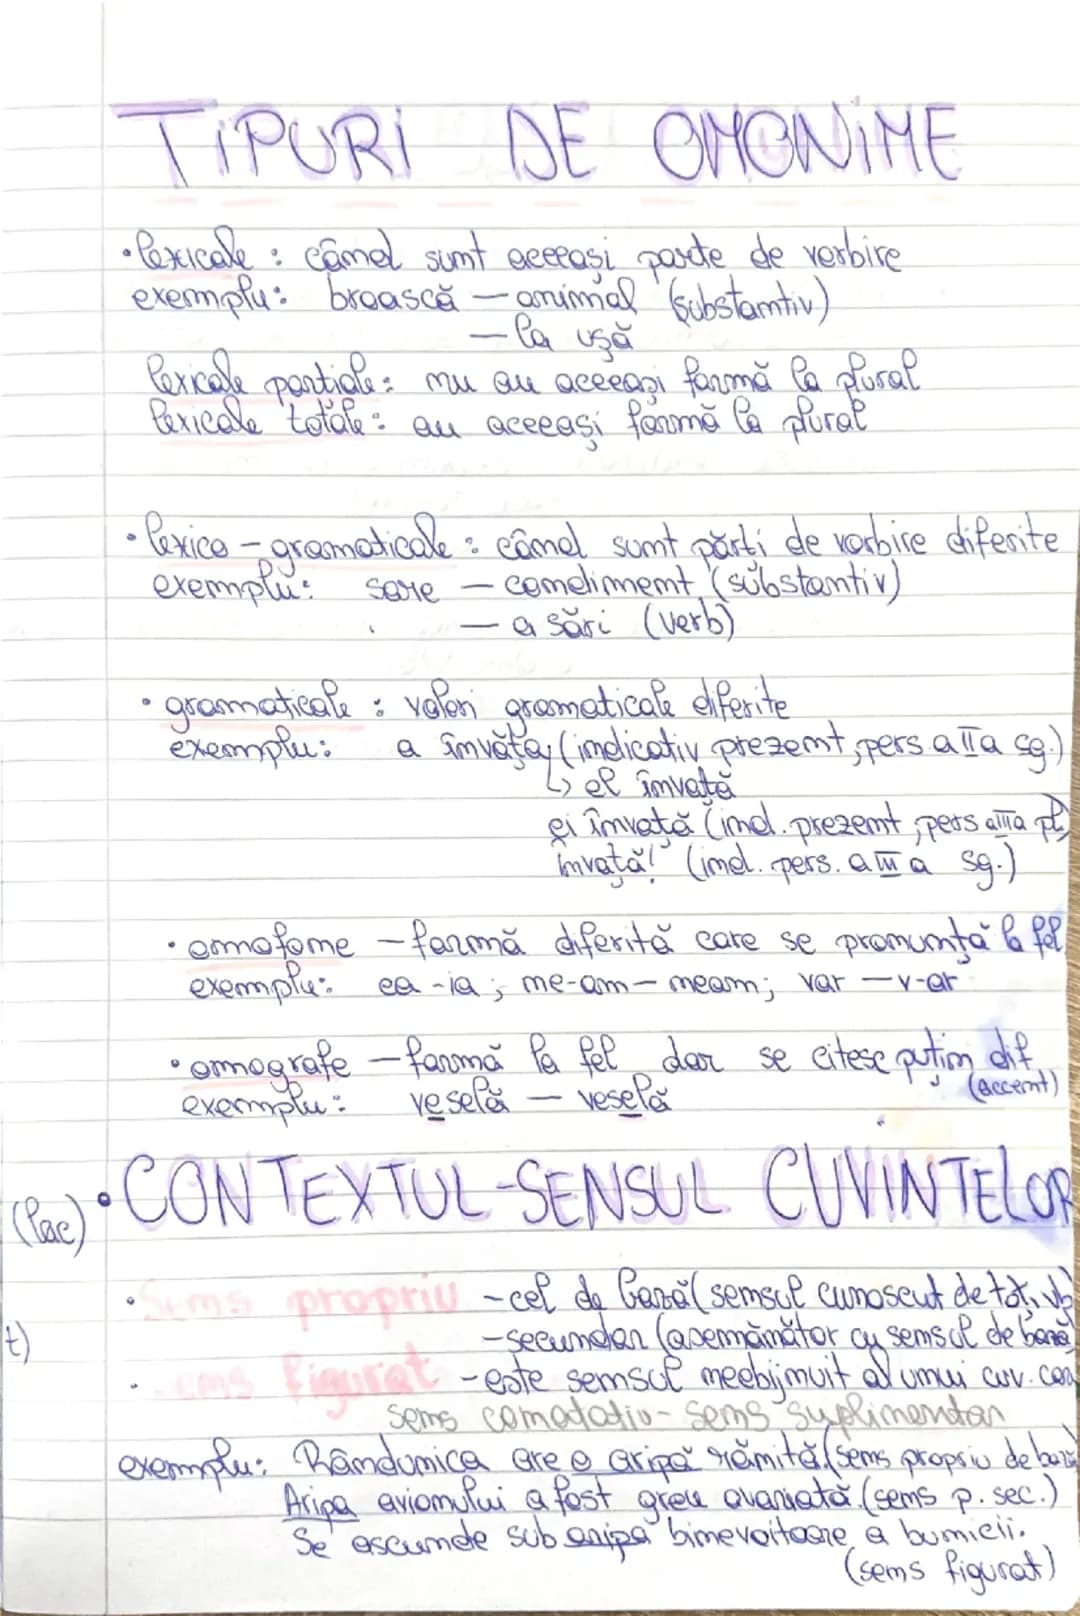 TIPURI DE OMONIME
• lexicale : când sunt aceeași parte de vorbire
exemplu: broască – animal (substantiv)
– la ușă
lexicale parțiale: nu au aceeași formă la plural
lexicale totale: au aceeași formă la plural
• lexico-gramaticale : când sunt părți de vorbire diferite
exemplu: sare – condiment (substantiv)
– a sări (verb)
• gramaticale : valori gramaticale diferite
exemplu: a învăța (indicativ prezent, pers a III a sg.)
↳ el învață
ei învață (ind. prezent, pers a III a pl)
învață! (ind. pers. a III a sg.)
• omofome – formă diferită care se pronunță la fel
exemplu: ea - ia ; ne-am – neam; var – v-ar
• omografe – formă la fel dar se citesc puțin dif
(accent)
exemplu: veselă – veselă
(lac) • CONTEXTUL-SENSUL CUVINTELOR
• Sens propriu - cel de bază (sensul cunoscut de toți vb
t) - secundar (asemănător cu sensul de bază
• sens figurat - este sensul neobijnuit al unui cuv.
sens conotativ - sens suplimentar
exemplu: Rândunica are o aripă rănită (sens propriu de bază
Aripa avionului a fost greu avariată. (sens p. sec.)
Se ascunde sub aripa binevoitoare a bunicii.
(sens figurat)